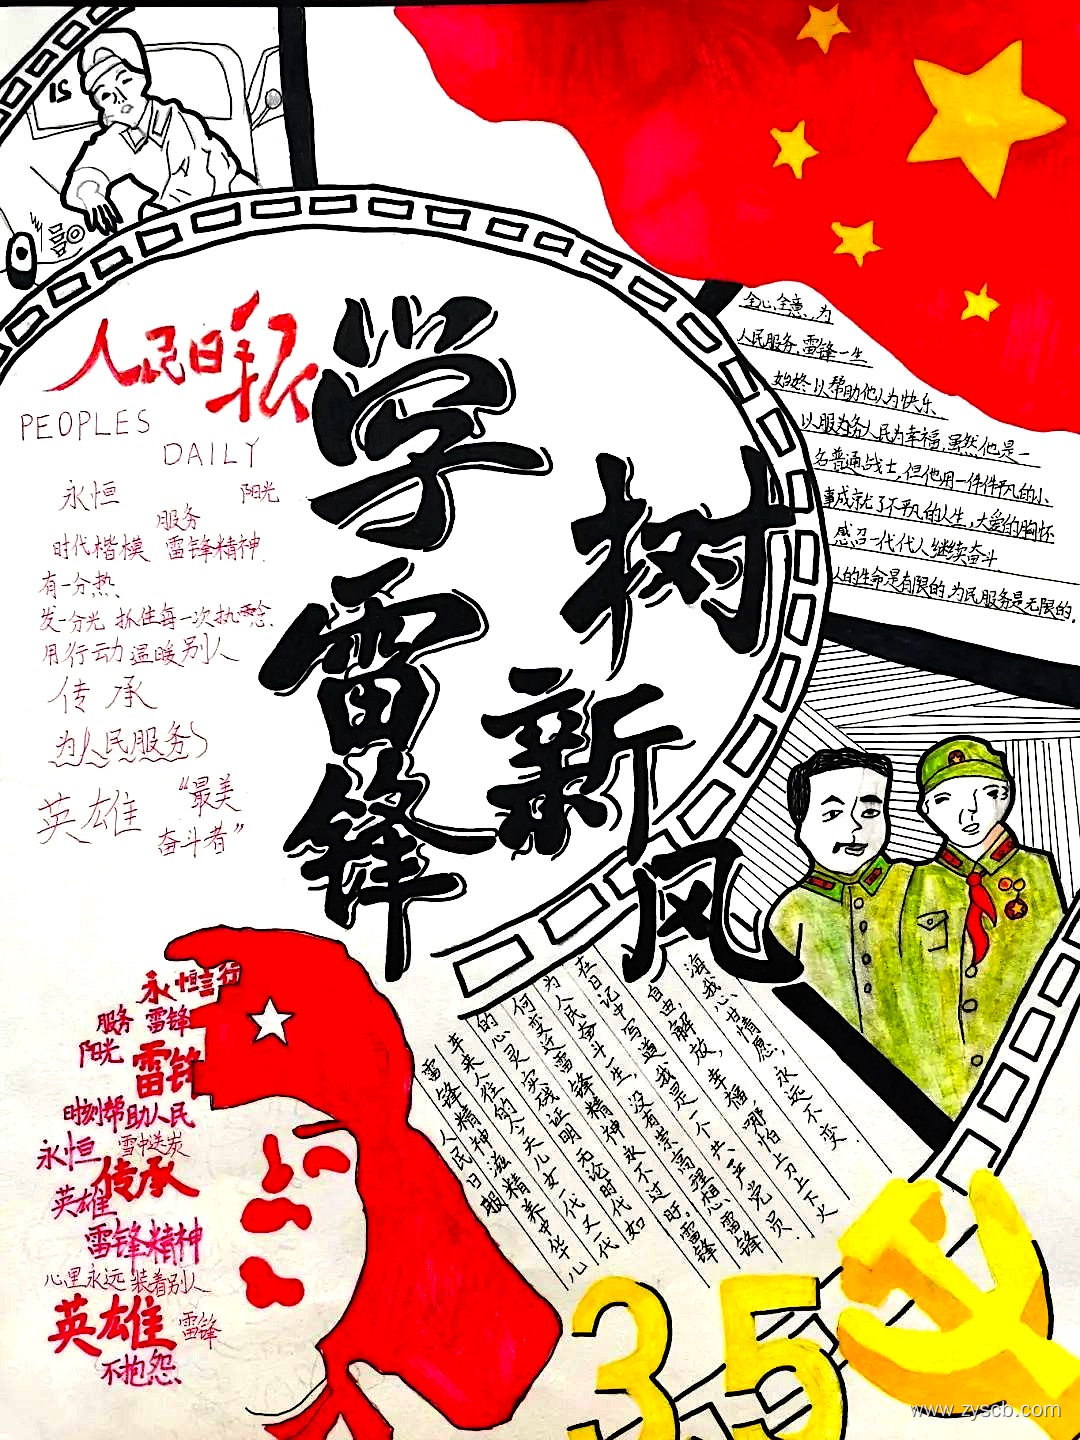 21
人民日报
PEOPLES
DAILY
永恒
阳光
服务
时代楷模 雷锋精神
有一分热
发一分光 抓住每一次执念
用行动温暖别人
传承
为人民服务
英雄
“最美
奋斗者”
学
雷
锋
树
新
风
全心全意 为
人民服务,雷锋一生
始终以帮助他人为快乐
以服务人民为幸福,虽然他是一
名普通战士,但他用一件件平凡的小
事成就了不平凡的人生,大爱的胸怀
感召一代代人继续奋斗.
人的生命是有限的为民服务是无限的.
永恒言行
服务 雷锋
阳光
雷锋
时刻帮助人民
永恒
雪中送炭
英雄
传承
雷锋精神
心里永远装着别人
英雄
雷锋
不抱怨
海我心甘情愿,永远不变.
自由,解放,幸福,哪怕上刀上下火
在日记中写道我是一个共产党员.
为人民奋斗一生,没有崇高理想雷锋
何变迁雷锋精神永不过时,雷锋
的心灵实践证明无论时代如
年来人住的今天儿女一代又一代
雷锋精神滋精养中华儿
人民日报
3.5
www.zyscb.com